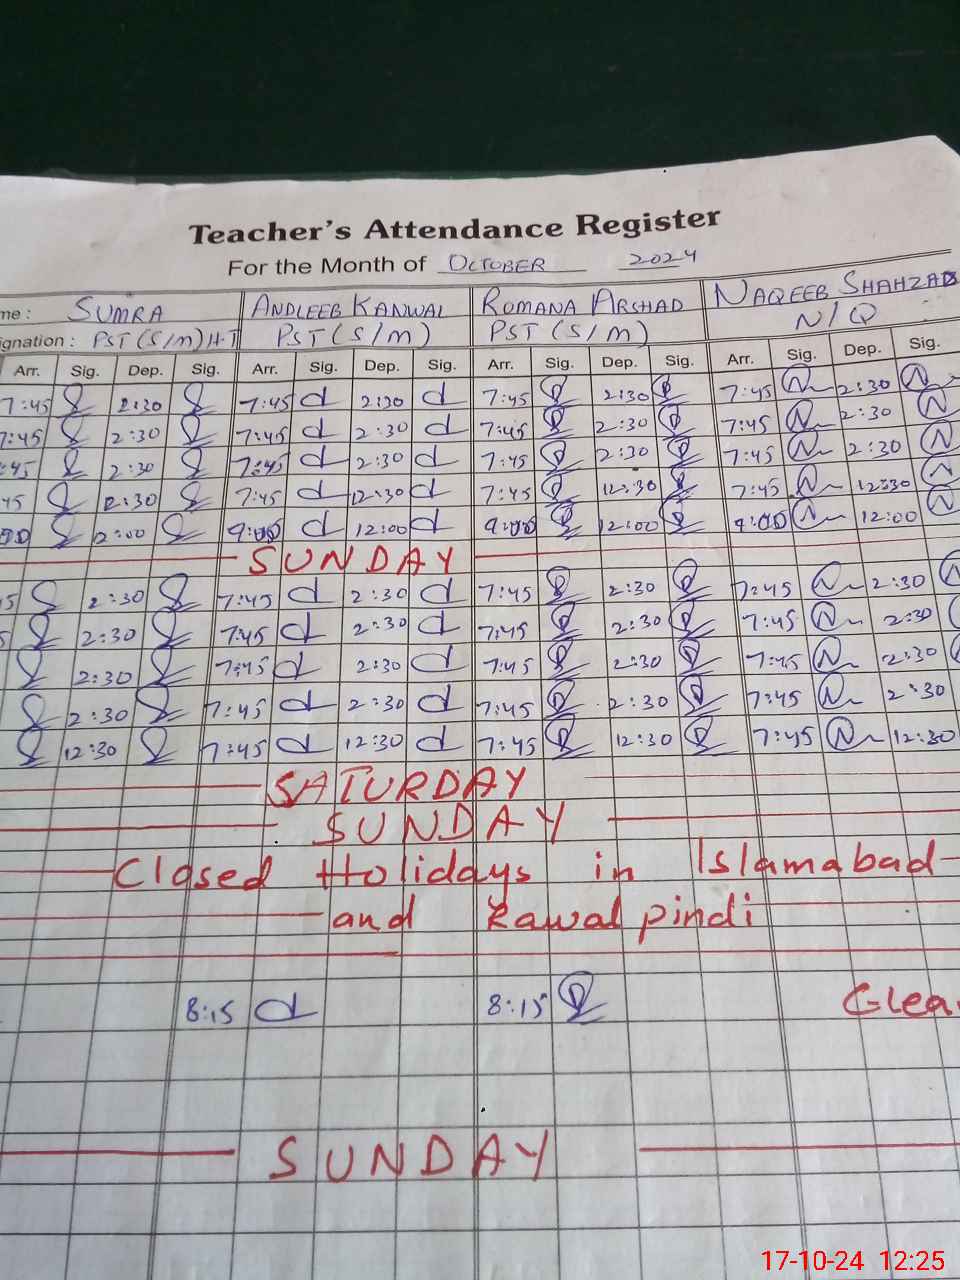 Teacher's Attendance Register
For the Month of OCTOBER 2024
me : SUMRA ANDLEEB KANWAL ROMANA ARSHAD NAQEEB SHAHZAD
ignation : PST (S/m) H-T PST (S/m) PST (S/m) N/Q
Arr. Sig. Dep. Sig. Arr. Sig. Dep. Sig. Arr. Sig. Dep. Sig. Arr. Sig. Dep. Sig.
7:45 2:30 7:45 d 2:30 d 7:45 2:30 7:45 2:30
7:45 2:30 7:45 d 2:30 d 7:45 2:30 7:45 2:30
:45 2:30 7:45 d 2:30 d 7:45 2:30 7:45 2:30
45 2:30 7:45 d 12:30 d 7:45 12:30 7:45 12:30
00 2:00 9:00 d 12:00 d 9:00 12:00 9:00 12:00
SUNDAY
5 2:30 7:45 d 2:30 d 7:45 2:30 7:45 2:30
2:30 7:45 d 2:30 d 7:45 2:30 7:45 2:30
2:30 7:45 d 2:30 d 7:45 2:30 7:45 2:30
2:30 7:45 d 2:30 d 7:45 2:30 7:45 2:30
12:30 7:45 d 12:30 d 7:45 12:30 7:45 12:30
SATURDAY
SUNDAY
Closed Holidays in Islamabad
and Rawalpindi
8:15 d 8:15
SUNDAY
17-10-24 12:25